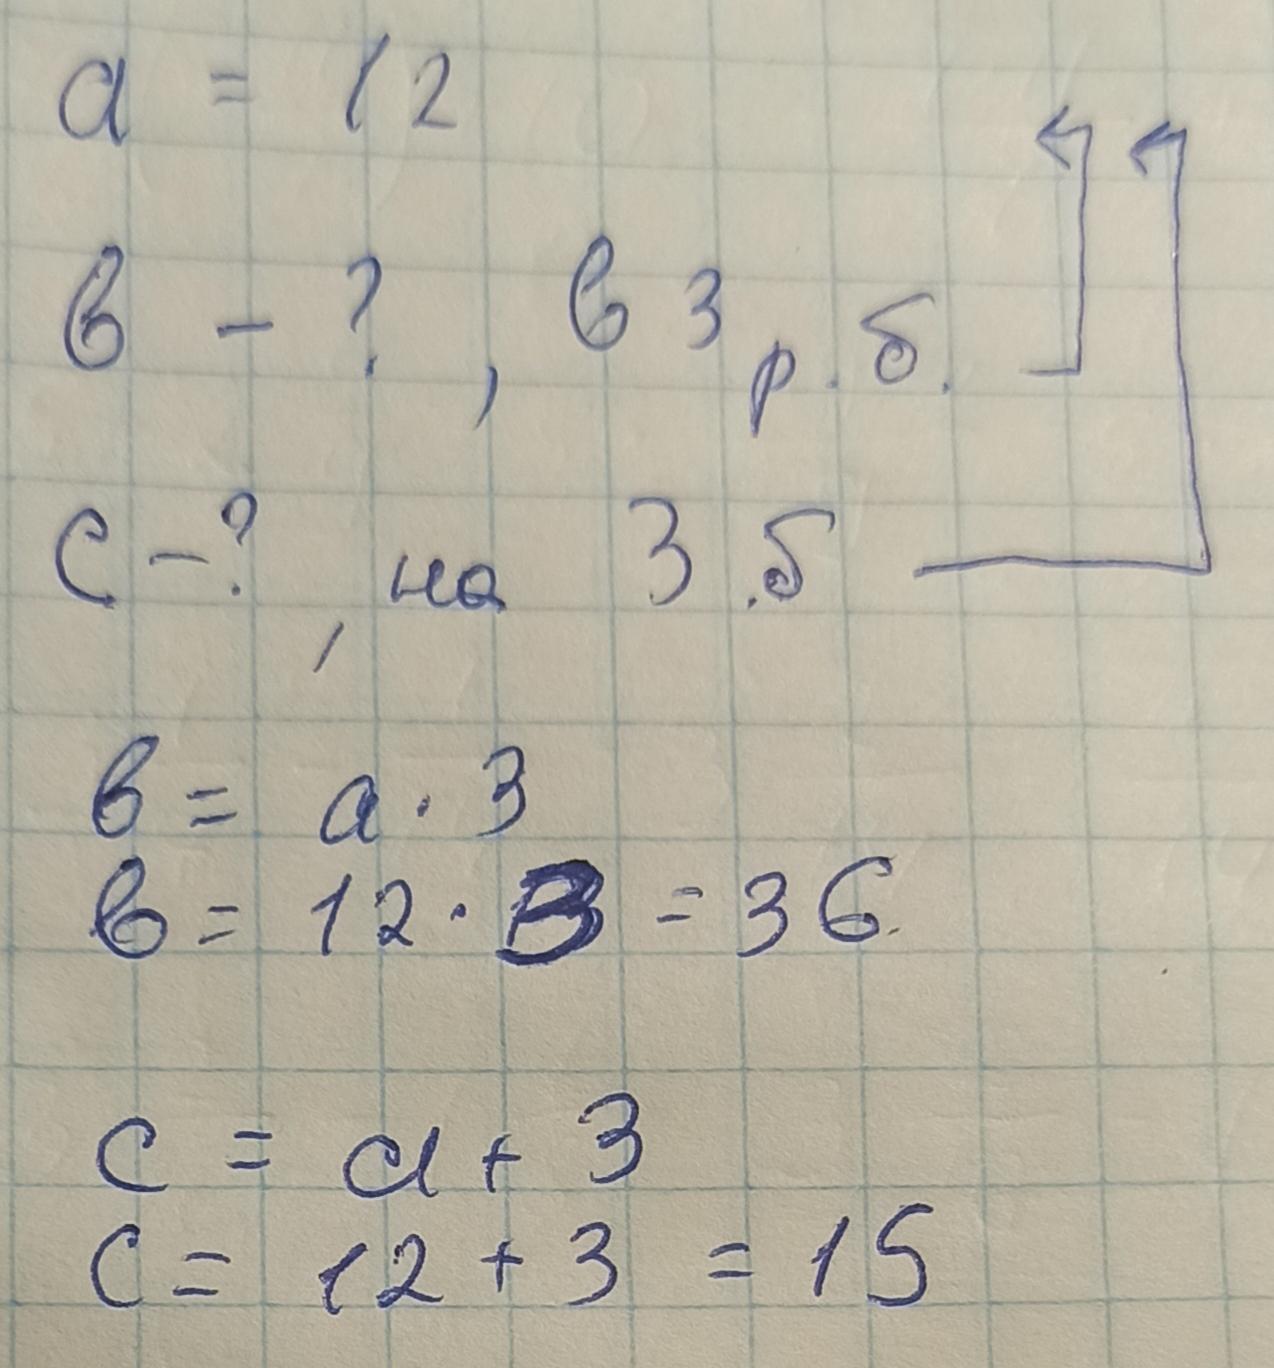 а = 12
в - ?, в 3 р. б.
с - ?, на 3 .б
в = а · 3
в = 12 · 3 = 36.
с = а + 3
с = 12 + 3 = 15